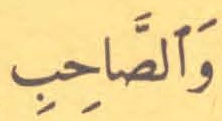 وَٱلصَّاحِبِ